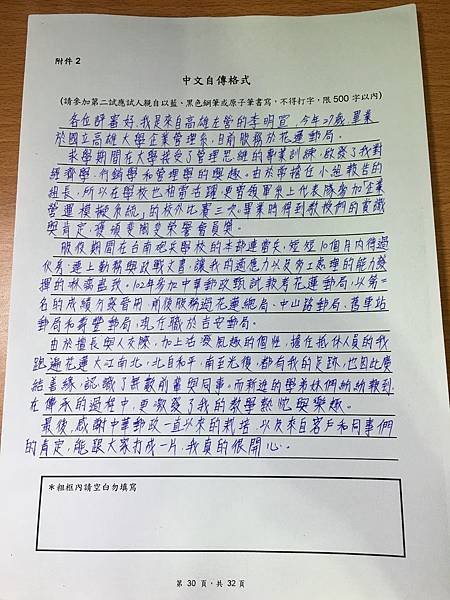 附件 2
中文自傳格式
(請參加第二試應試人親自以藍、黑色鋼筆或原子筆書寫,不得打字,限 500 字以內)
各位評審好,我是來自高雄左營的李明宜,今年27歲,畢業
於國立高雄大學企業管理系,目前服務於花蓮郵局。
求學期間在大學接受了管理思維的專業訓練,啟發了我對
經濟學、行銷學和管理學的興趣。由於常擔任小組報告的
組長,所以在學校也相當活躍,更曾領軍系上代表隊參加「企業
營運模擬系統」的校外比賽三次。畢業時得到教授們的賞識
與肯定,獲頒斐陶斐榮譽會員獎。
服役期間在台南砲兵學校的本部連當兵,短短10個月內待過
伙房、連上勤務與政戰文書,讓我的適應力以及分工處理的能力發
揮的淋漓盡致。102年參加中華郵政甄試報考花蓮郵局,以第一
名的成績分發晉用,前後服務過花蓮總局、中山路郵局、舊車站
郵局和壽豐郵局,現在職於吉安郵局。
由於擅長與人交際,加上活潑風趣的個性,擔任抵休人員的我
跑遍花蓮大江南北,北自和平,南至光復,都有我的足跡,也因此廣
結善緣,認識了無數前輩與同事。而新進的學弟妹們紛紛報到,
在傳承的過程中,更激發了我的教學熱忱與樂趣。
最後,感謝中華郵政一直以來的栽培,以及來自客戶和同事們
的肯定,能跟大家打成一片,我真的很開心。
*粗框內請空白勿填寫
第 30 頁,共 32 頁